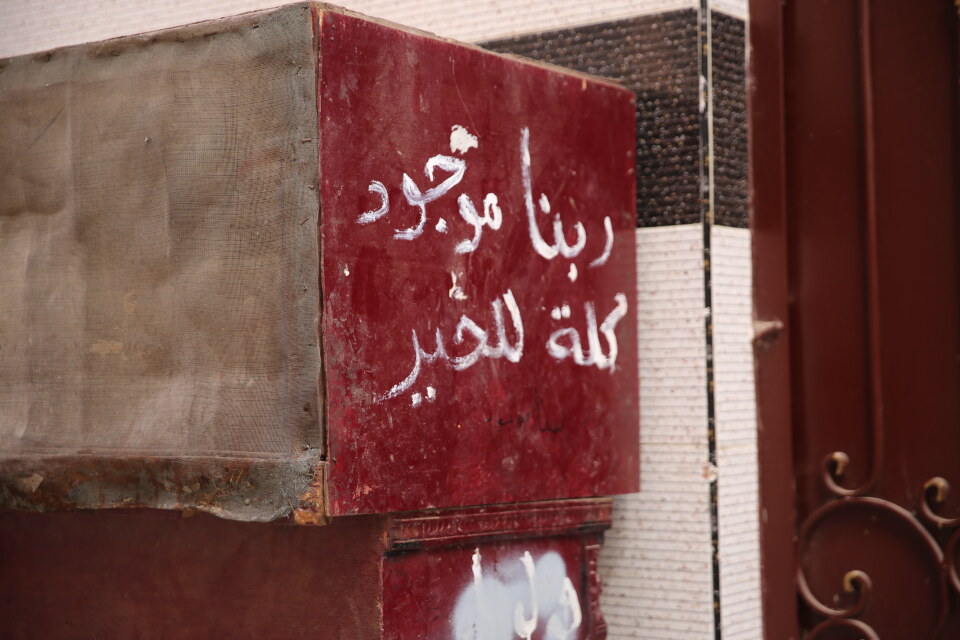 ربنا موجود
كلة للخير